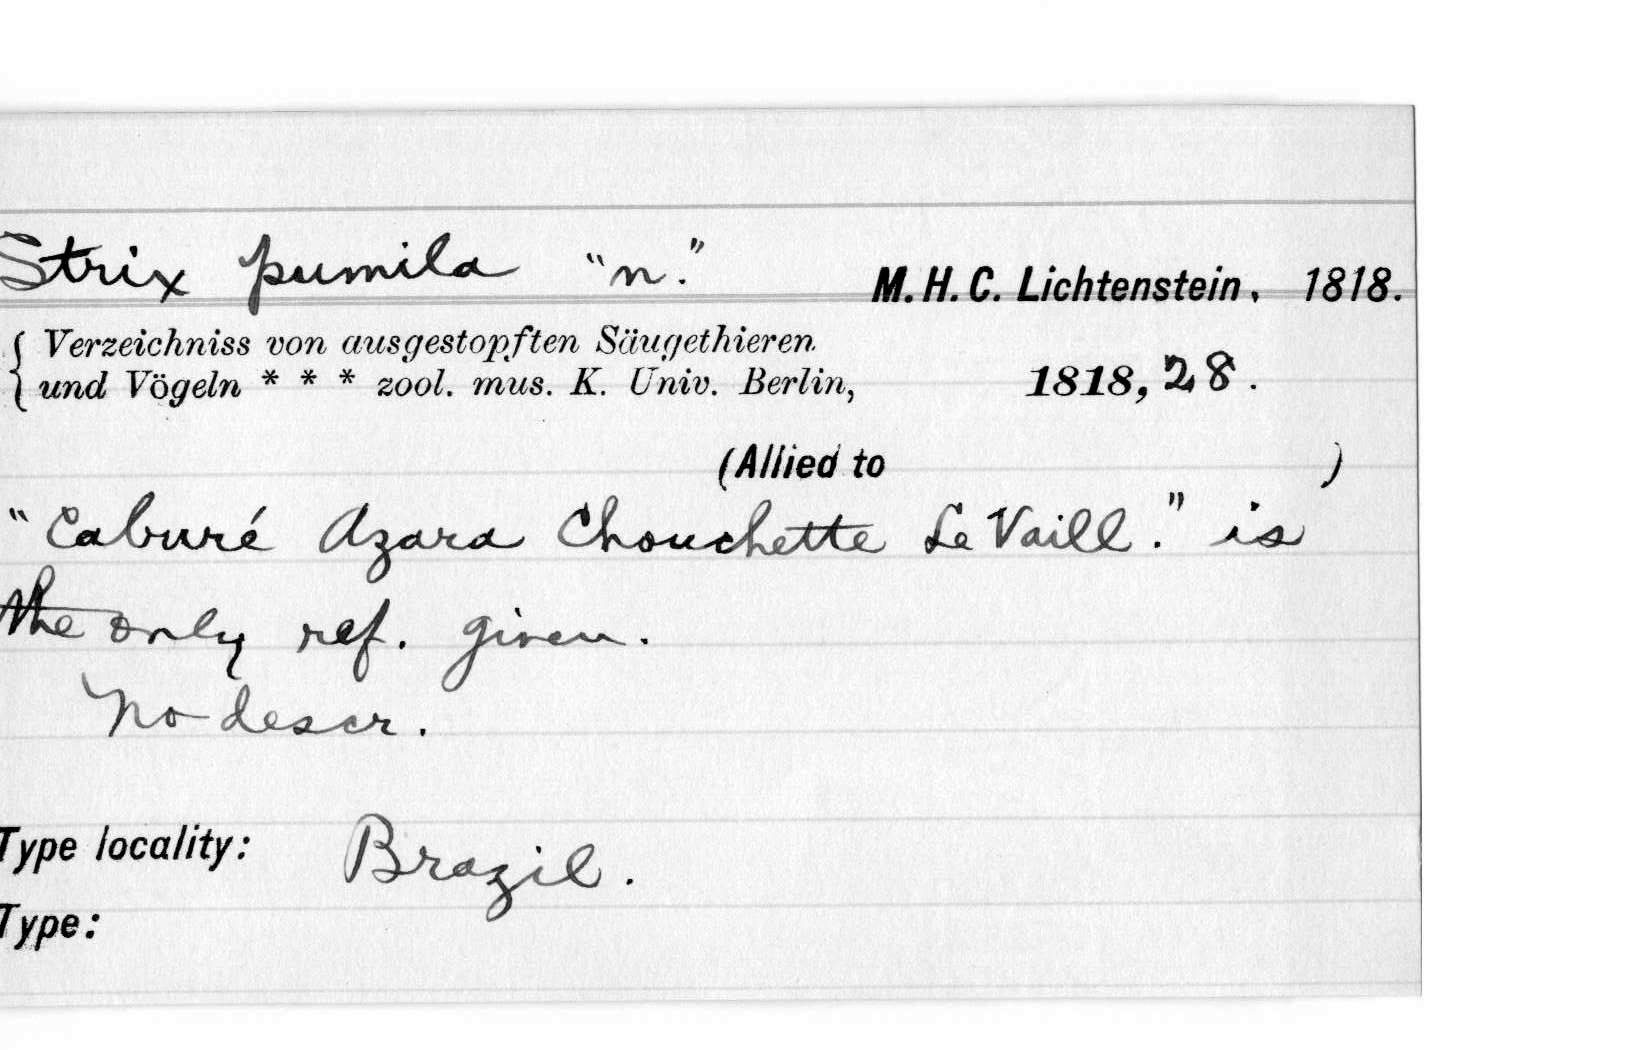 Strix pumila "n." M. H. C. Lichtenstein, 1818.
Verzeichniss von ausgestopften Säugethieren
und Vögeln * * * zool. mus. K. Univ. Berlin, 1818, 28.
(Allied to )
"Caburé Azara Chouchette Le Vaill." is
the only ref. given.
No descr.
Type locality: Brazil.
Type: